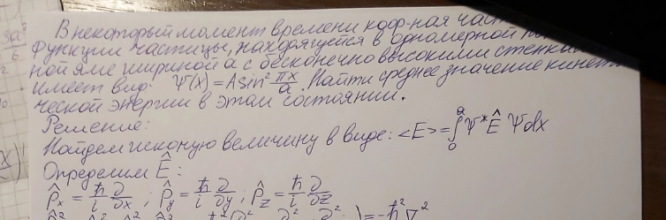 В некоторый момент времени коор-ная част
функции частицы, находящуется в одномерной по
ной яме шириной a с бесконечно высокими стенка
имеет вид: Ψ(x) = A sin² πx/a. Найти среднее значение кинет
ческой энергии в этом состоянии.
Решение:
Найдем искомую величину в виде: <E> = ∫₀ᵃ Ψ* Ê Ψ dx
Определим Ê:
P̂x = ħ/i ∂/∂x ; P̂y = ħ/i ∂/∂y ; P̂z = ħ/i ∂/∂z
) = -ħ² ∇²